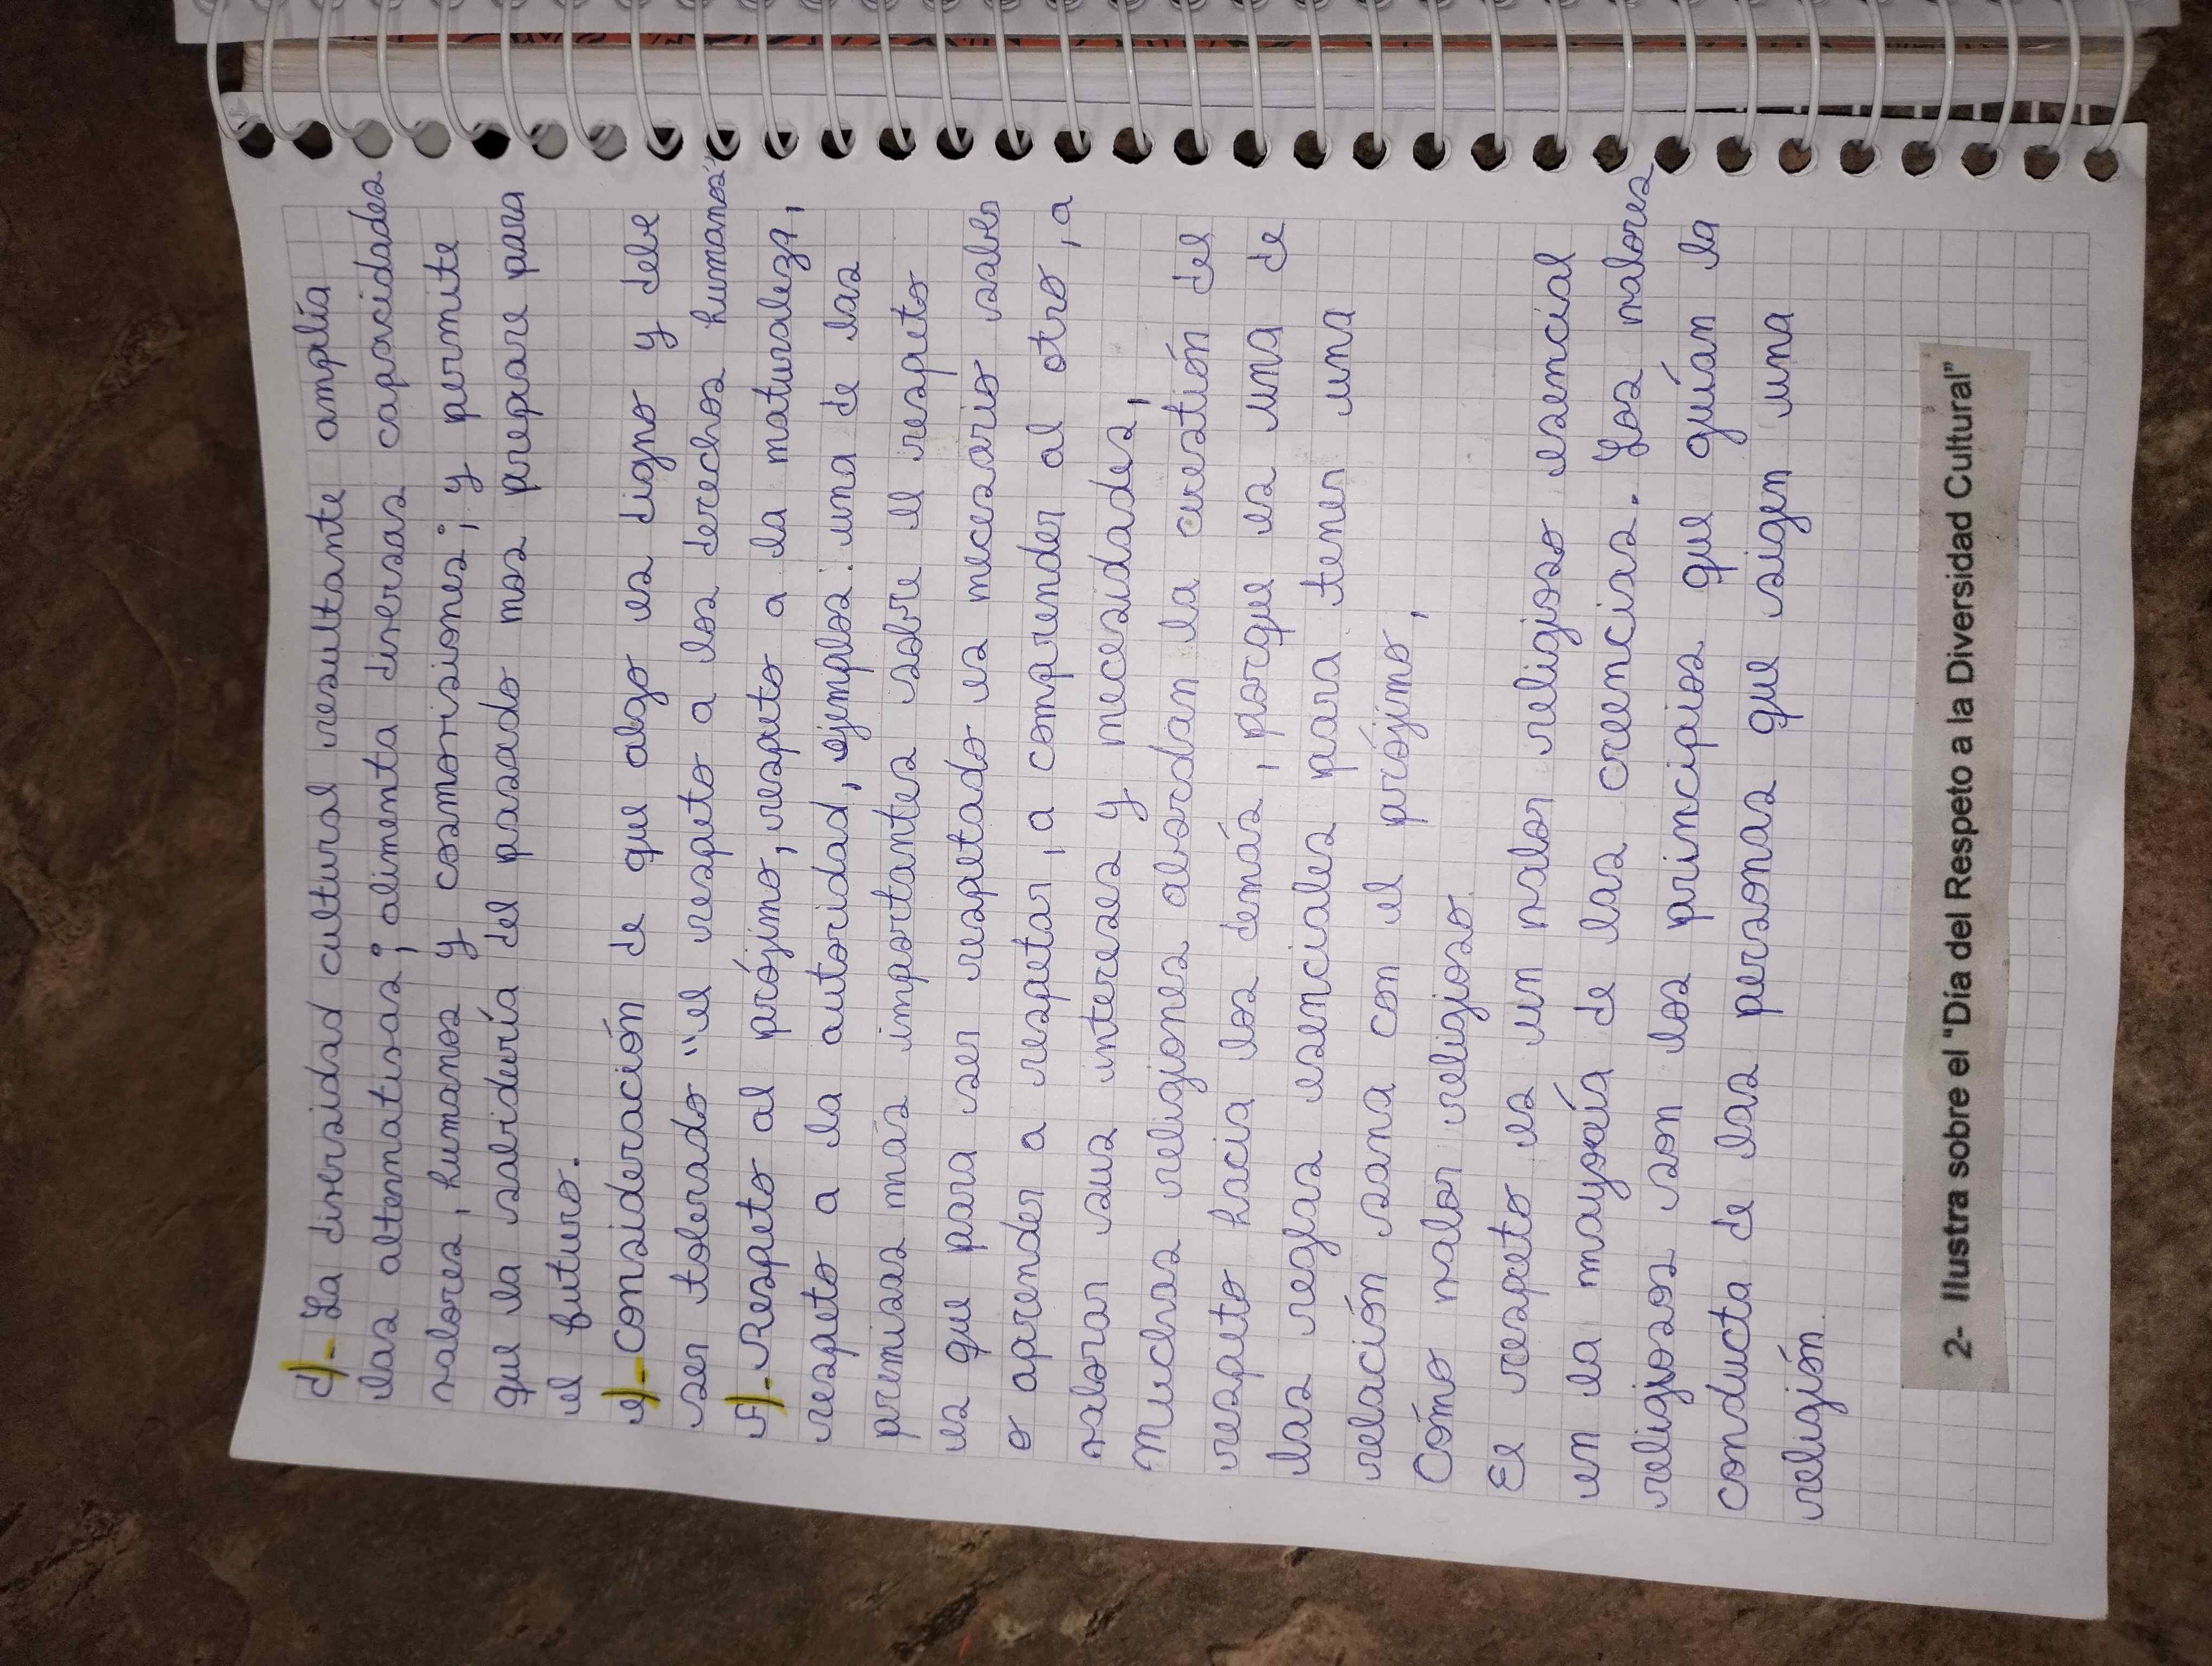 d)- La diversidad cultural resultante amplía
las alternativas; alimenta diversas capacidades
valores, humanos y cosmovisiones; y permite
que la sabiduría del pasado nos prepare para
el futuro.
e)- Consideración de que algo es digno y debe
ser tolerado "el respeto a los derechos humanos"
F)- Respeto al prójimo, respeto a la naturaleza,
respeto a la autoridad, ejemplos: una de las
premisas más importantes sobre el respeto
es que para ser respetado es necesario saber
o aprender a respetar, a comprender al otro, a
valorar sus intereses y necesidades,
Muchas religiones abordan la cuestión del
respeto hacia los demás, porque es una de
las reglas esenciales para tener una
relación sana con el prójimo,
Cómo valor religioso.
El respeto es un valor religioso esencial
en la mayoría de las creencias. Los valores
religiosos son los principios que guían la
conducta de las personas que sigen una
religión.
2- Ilustra sobre el "Día del Respeto a la Diversidad Cultural"